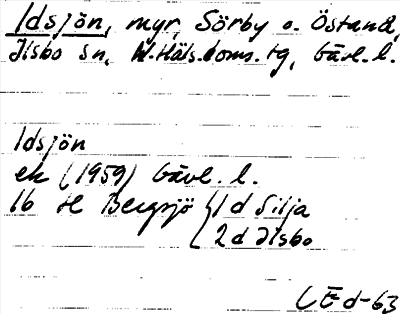 Idsjön, myr, Sörby o. Östanå,
Ilsbo sn, N. Häls. doms. tg, Gävl. l.
Idsjön
ek (1959) Gävl. l.
16 H Bergsjö 1 d Silja
2 d Ilsbo
CE d-63